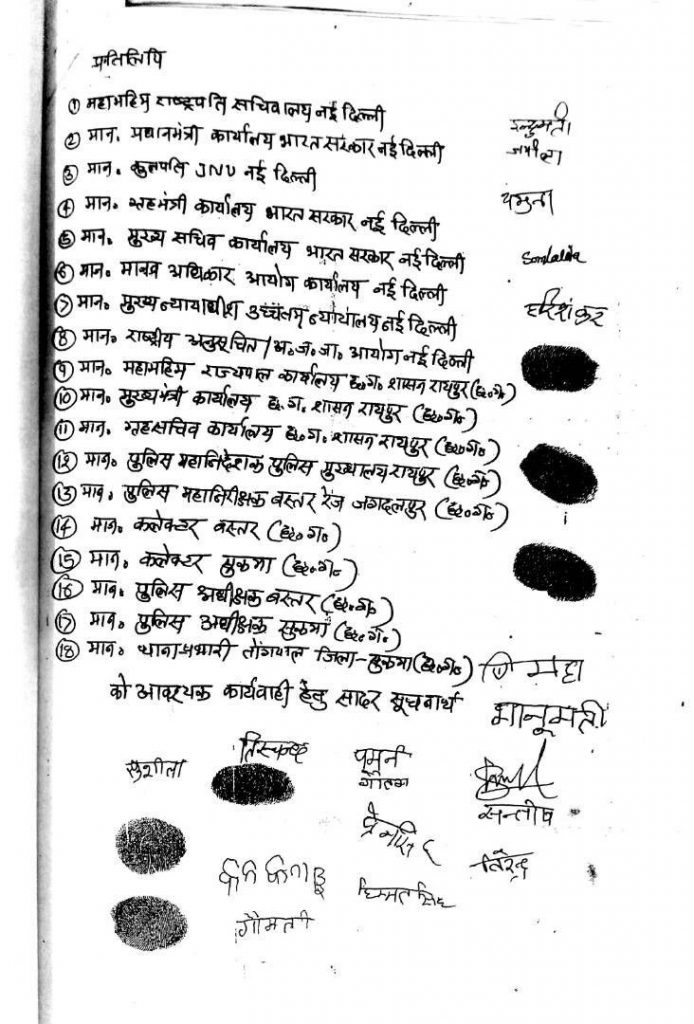 प्रतिलिपि
① महामहिम राष्ट्रपति सचिवालय नई दिल्ली
② मान. प्रधानमंत्री कार्यालय भारत सरकार नई दिल्ली
③ मान. कुलपति JNU नई दिल्ली
④ मान. गृहमंत्री कार्यालय भारत सरकार नई दिल्ली
⑤ मान. मुख्य सचिव कार्यालय भारत सरकार नई दिल्ली
⑥ मान. मानव अधिकार आयोग कार्यालय नई दिल्ली
⑦ मान. मुख्य न्यायाधीश उच्चतम न्यायालय नई दिल्ली
⑧ मान. राष्ट्रीय अनुसूचित / अ.ज.जा. आयोग नई दिल्ली
⑨ मान. महामहिम राज्यपाल कार्यालय छ.ग. शासन रायपुर (छ.ग.)
⑩ मान. मुख्यमंत्री कार्यालय छ.ग. शासन रायपुर (छ.ग.)
⑪ मान. गृहसचिव कार्यालय छ.ग. शासन रायपुर (छ.ग.)
⑫ मान. पुलिस महानिदेशक पुलिस मुख्यालय रायपुर (छ.ग.)
⑬ मान. पुलिस महानिरीक्षक बस्तर रेंज जगदलपुर (छ.ग.)
⑭ मान. कलेक्टर बस्तर (छ.ग.)
⑮ मान. कलेक्टर सुकमा (छ.ग.)
⑯ मान. पुलिस अधीक्षक बस्तर (छ.ग.)
⑰ मान. पुलिस अधीक्षक सुकमा (छ.ग.)
⑱ मान. थाना प्रभारी तोंगपाल जिला-सुकमा (छ.ग.)
को आवश्यक कार्यवाही हेतु सादर सूचनार्थ
इन्दुमती
यमुना
हरिशंकर
भानूमती
सुशीला
सन्तोष
हिम्मत सिंह
गौमती